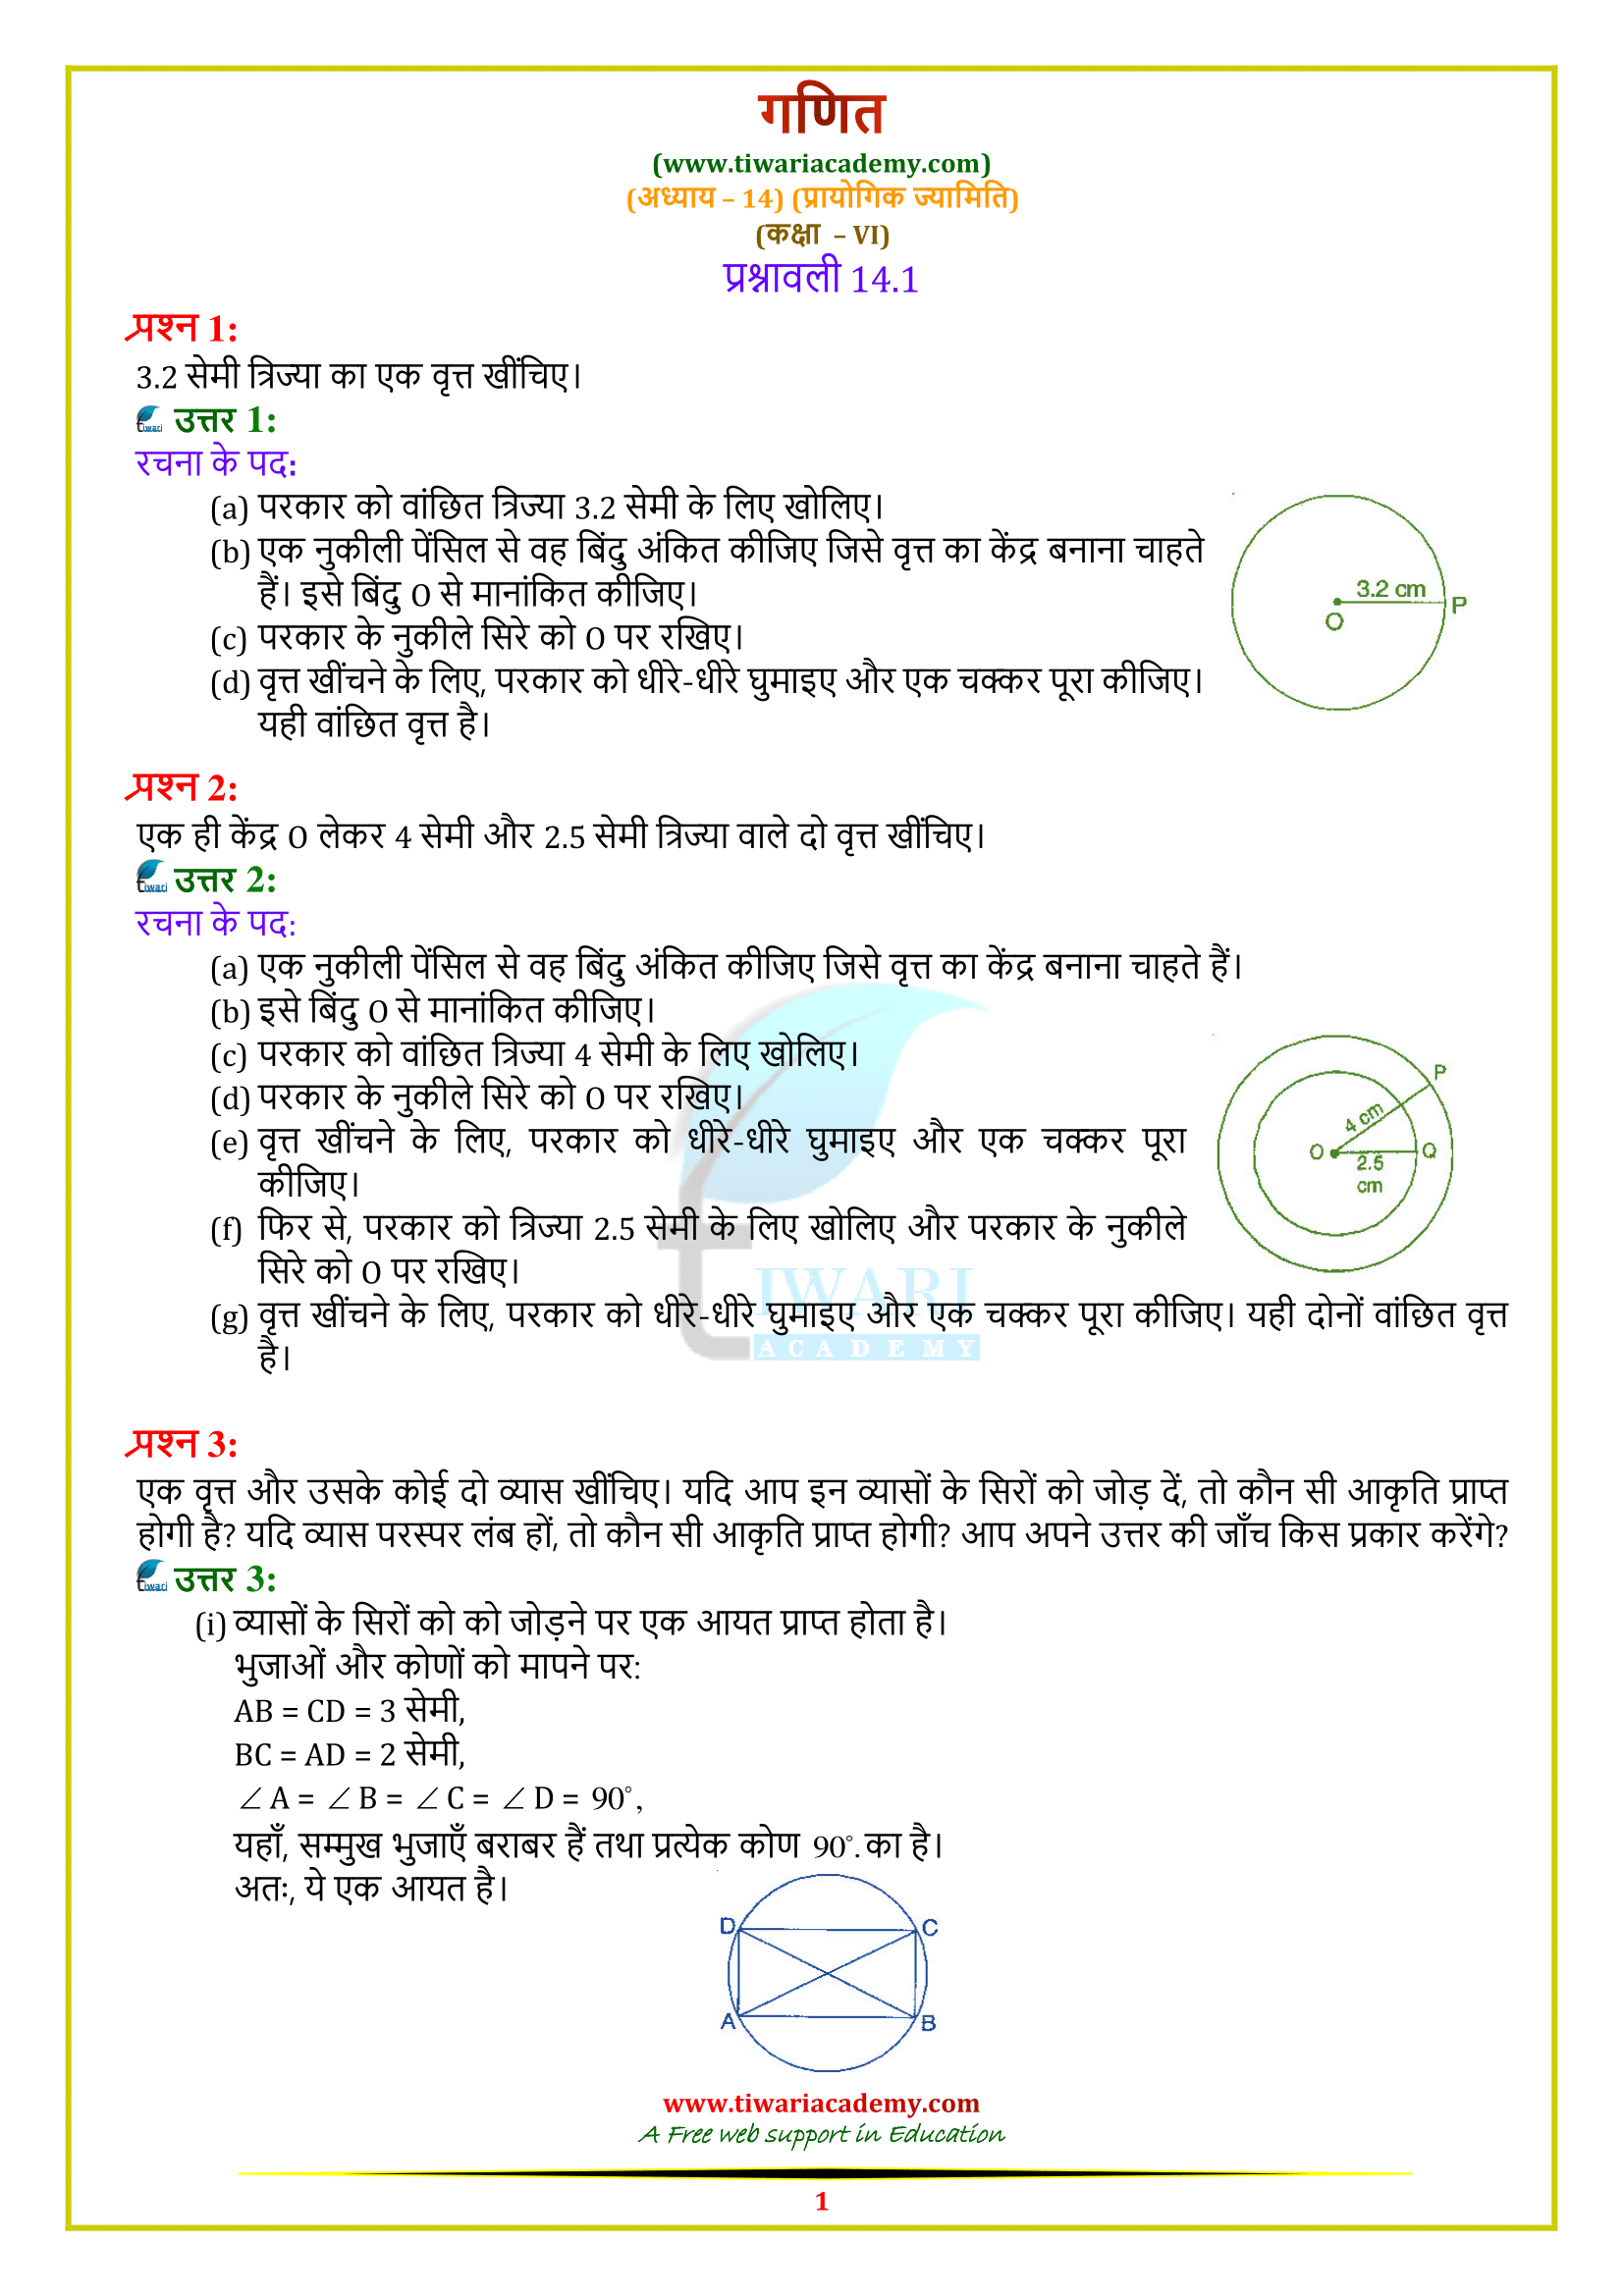 गणित
(www.tiwariacademy.com)
(अध्याय – 14) (प्रायोगिक ज्यामिति)
(कक्षा – VI)
प्रश्नावली 14.1
प्रश्न 1:
3.2 सेमी त्रिज्या का एक वृत्त खींचिए।
iwari उत्तर 1:
रचना के पद:
(a) परकार को वांछित त्रिज्या 3.2 सेमी के लिए खोलिए।
(b) एक नुकीली पेंसिल से वह बिंदु अंकित कीजिए जिसे वृत्त का केंद्र बनाना चाहते
हैं। इसे बिंदु O से मानांकित कीजिए।
(c) परकार के नुकीले सिरे को O पर रखिए।
(d) वृत्त खींचने के लिए, परकार को धीरे-धीरे घुमाइए और एक चक्कर पूरा कीजिए।
यही वांछित वृत्त है।
3.2 cm
O
P
प्रश्न 2:
एक ही केंद्र O लेकर 4 सेमी और 2.5 सेमी त्रिज्या वाले दो वृत्त खींचिए।
tiwari उत्तर 2:
रचना के पद:
(a) एक नुकीली पेंसिल से वह बिंदु अंकित कीजिए जिसे वृत्त का केंद्र बनाना चाहते हैं।
(b) इसे बिंदु O से मानांकित कीजिए।
(c) परकार को वांछित त्रिज्या 4 सेमी के लिए खोलिए।
(d) परकार के नुकीले सिरे को O पर रखिए।
(e) वृत्त खींचने के लिए, परकार को धीरे-धीरे घुमाइए और एक चक्कर पूरा
कीजिए।
(f) फिर से, परकार को त्रिज्या 2.5 सेमी के लिए खोलिए और परकार के नुकीले
सिरे को O पर रखिए।
(g) वृत्त खींचने के लिए, परकार को धीरे-धीरे घुमाइए और एक चक्कर पूरा कीजिए। यही दोनों वांछित वृत्त
है।
P
4 cm
O
Q
2.5
cm
TIWARI
ACADEMY
प्रश्न 3:
एक वृत्त और उसके कोई दो व्यास खींचिए। यदि आप इन व्यासों के सिरों को जोड़ दें, तो कौन सी आकृति प्राप्त
होगी है? यदि व्यास परस्पर लंब हों, तो कौन सी आकृति प्राप्त होगी? आप अपने उत्तर की जाँच किस प्रकार करेंगे?
tiwari उत्तर 3:
(i) व्यासों के सिरों को को जोड़ने पर एक आयत प्राप्त होता है।
भुजाओं और कोणों को मापने पर:
AB = CD = 3 सेमी,
BC = AD = 2 सेमी,
∠A = ∠B = ∠C = ∠D = 90°,
यहाँ, सम्मुख भुजाएँ बराबर हैं तथा प्रत्येक कोण 90°.का है।
अतः, ये एक आयत है।
D
C
A
B
www.tiwariacademy.com
A Free web support in Education
1